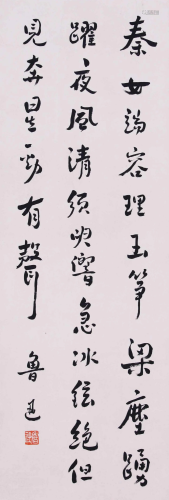 秦女端容理玉筝梁尘踊
跃夜风清须臾响急冰弦绝但
见奔星劲有声
鲁迅